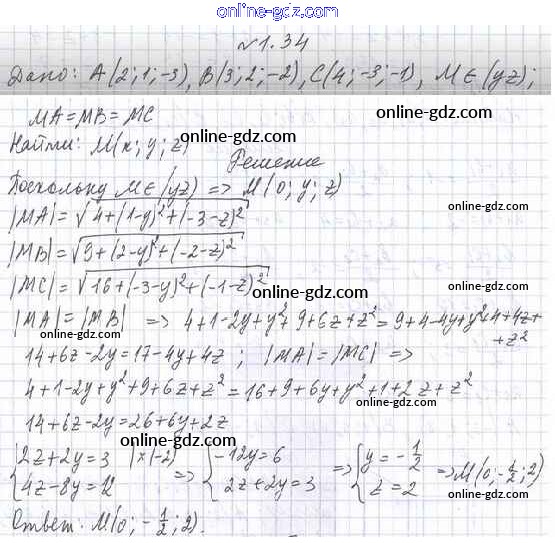 online-gdz.com
№1.34
Дано: A(2; 1; -3), B(3; 2; -2), C(4; -3; -1), M∈(yz);
MA=MB=MC online-gdz.com
Найти: M(x; y; z) online-gdz.com
Решение
Поскольку M∈(yz) => M(0; y; z)
|MA|=√4+(1-y)²+(-3-z)² online-gdz.com
|MB|=√9+(2-y)²+(-2-z)² online-gdz.com
|MC|=√16+(-3-y)²+(-1-z)² online-gdz.com
|MA|=|MB| => 4+1-2y+y²+9+6z+z²=9+4-4y+y²+4+4z+
+z²
online-gdz.com
14+6z-2y=17-4y+4z; |MA|=|MC| =>
online-gdz.com
4+1-2y+y²+9+6z+z²=16+9+6y+y²+1+2z+z²
online-gdz.com
14+6z-2y=26+6y+2z
online-gdz.com
{2z+2y=3 |×(-2) => {-12y=6 => {y=-1/2 => M(0; -1/2; 2)
{4z-8y=12 {2z+2y=3 {z=2
online-gdz.com
Ответ: M(0; -1/2; 2).
online-gdz.com